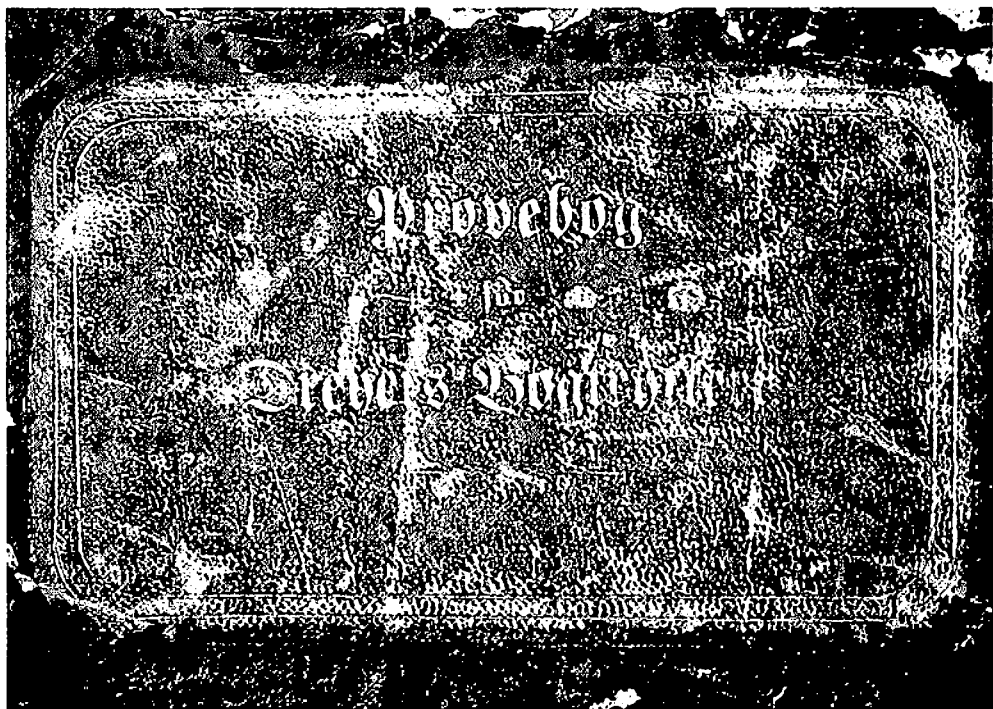 Prøvebog
for
Dreyers Bogtrykkeri